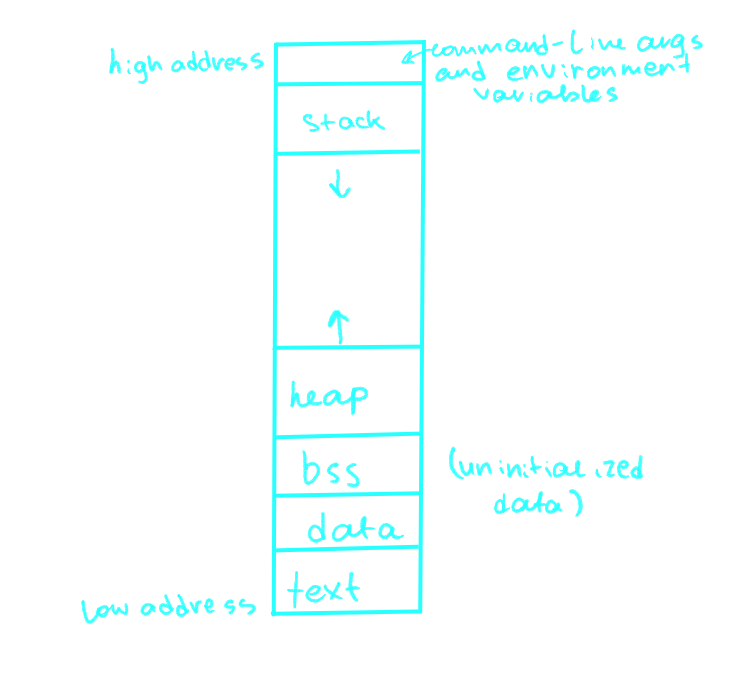 high address
command-line args
and environment
variables
stack
heap
bss
(uninitialized
data)
data
text
low address